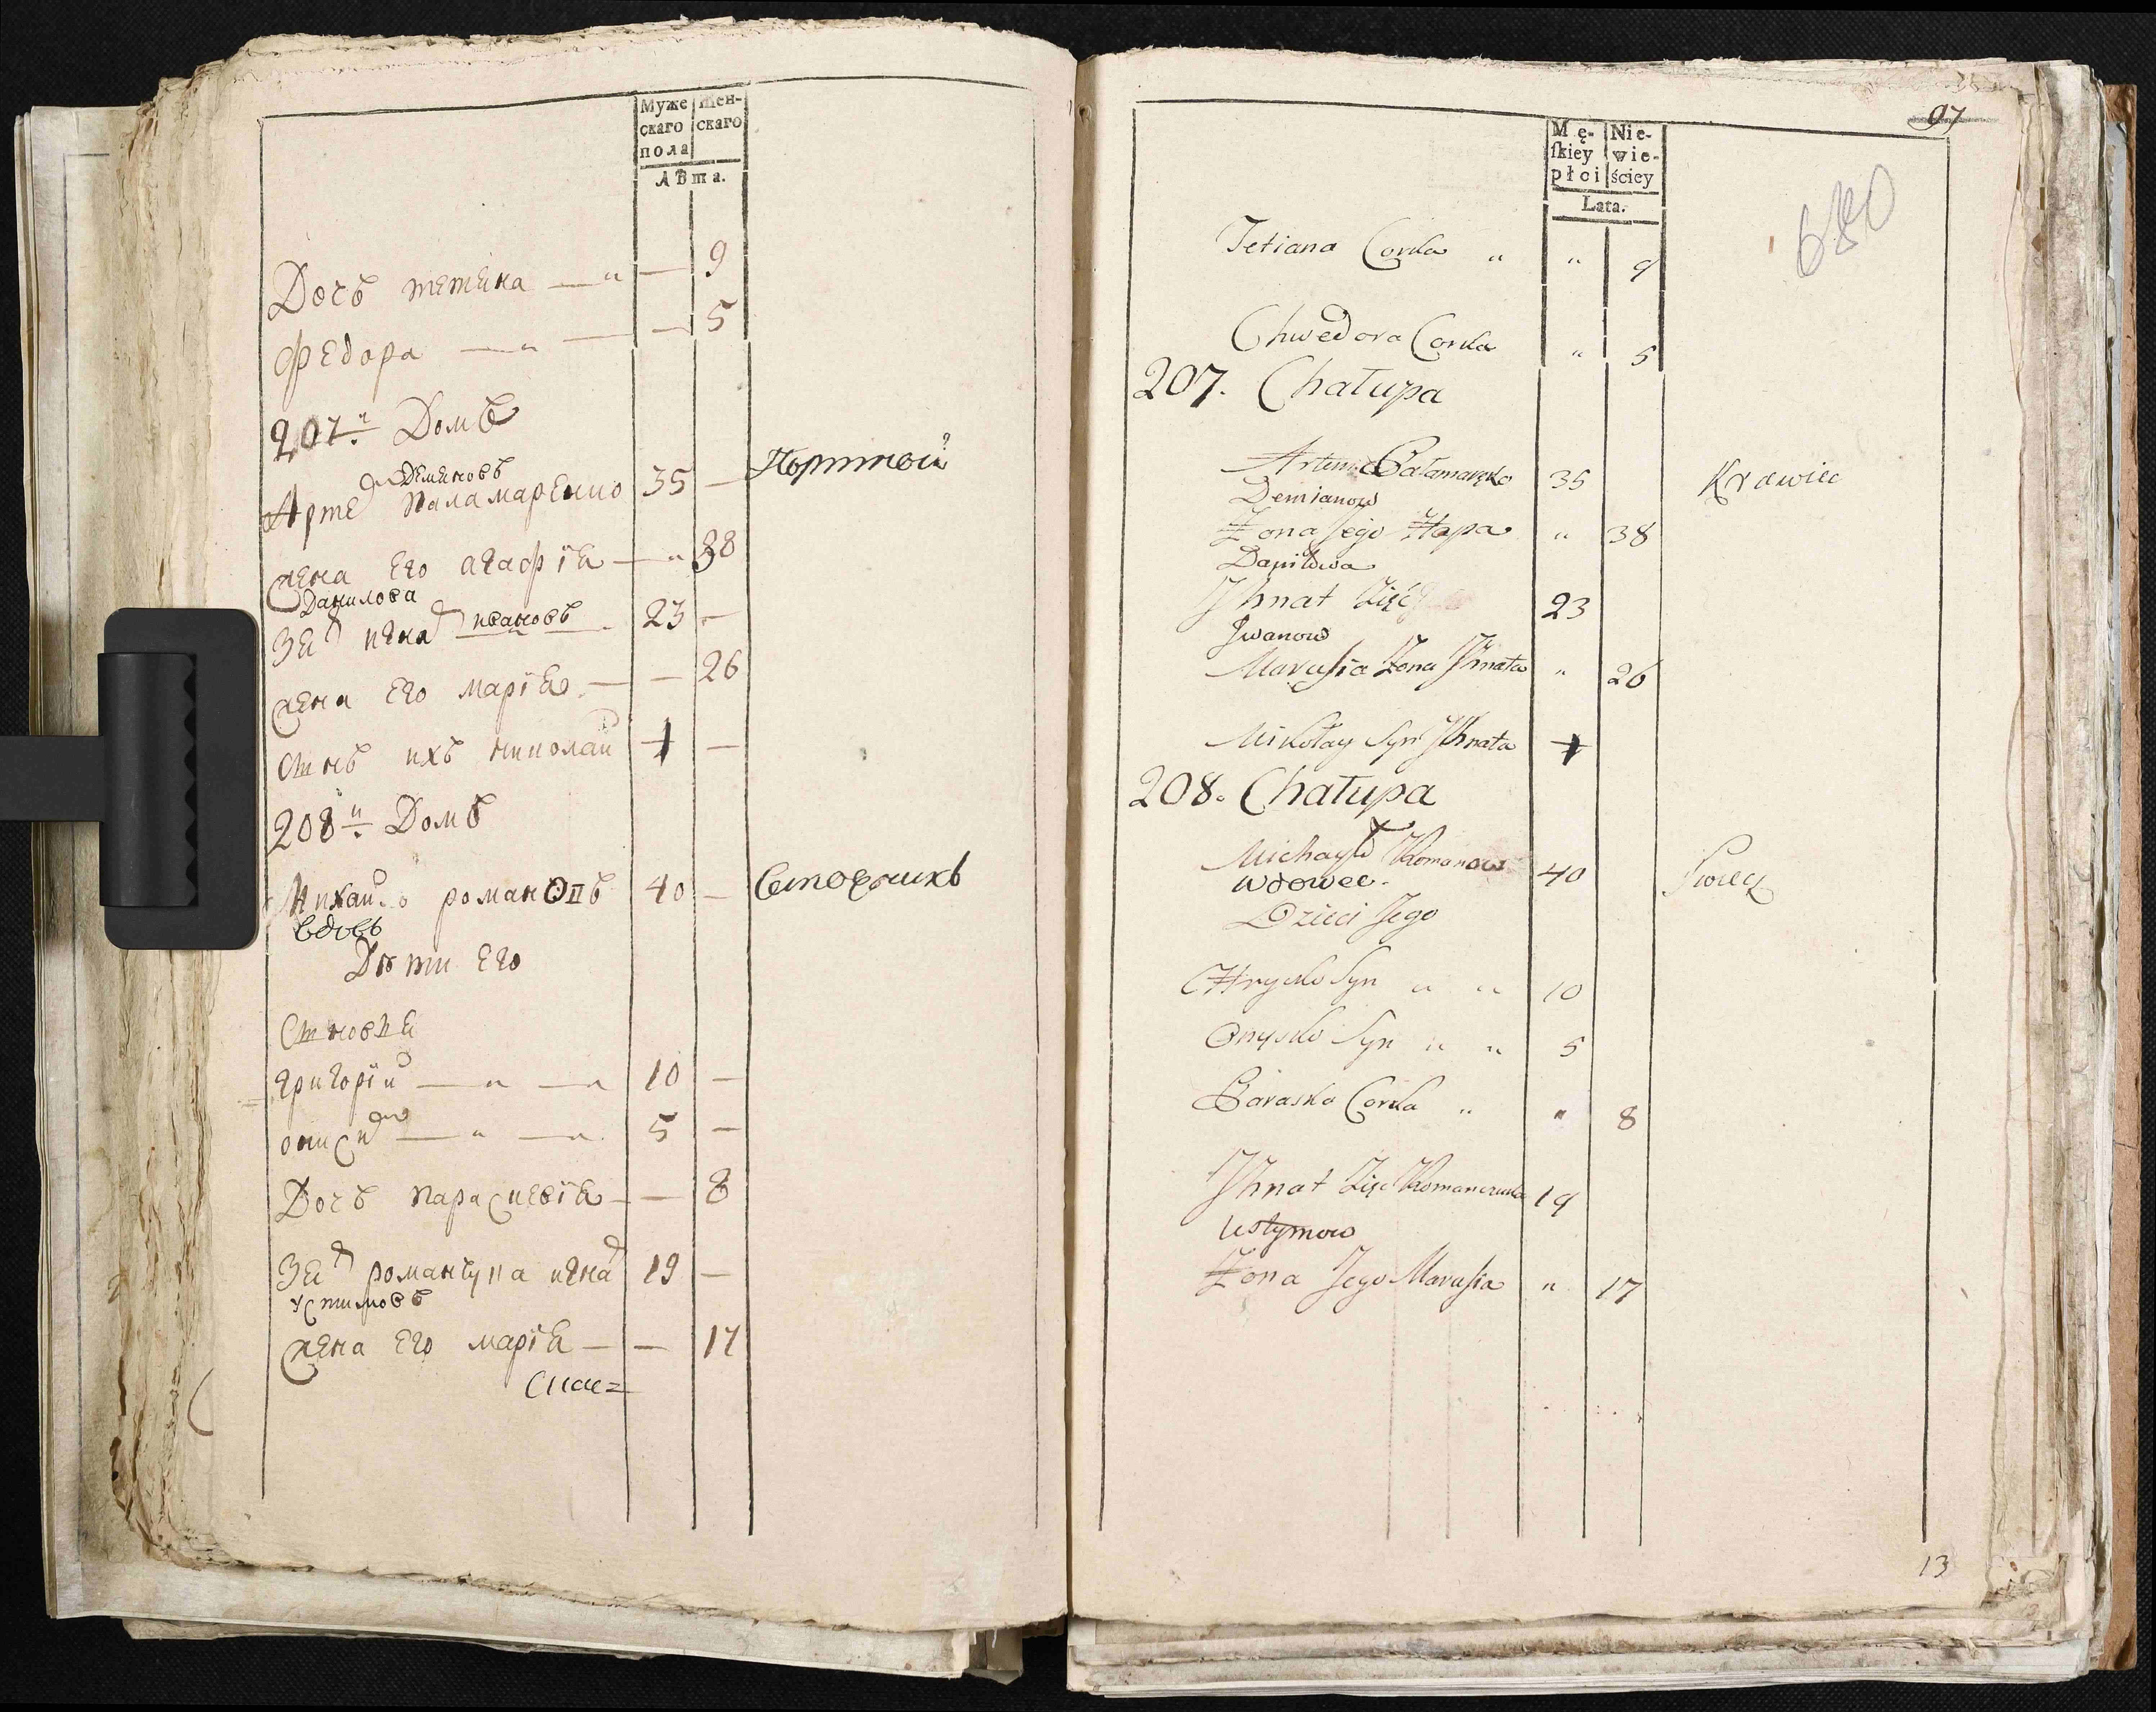 Муже
скаго
пола
Жен-
скаго
Лѣта.
Дочь тетяна — „ — 9
Федора — „ — — 5
207й Домъ
Демяновъ
Арте Паламаренко 35 — Портной
жена Его агафія — „ 38
Данилова
Зят игнат ивановъ 23 —
жена Его марія — — 26
Сынъ ихъ николай 1 —
208й Домъ
Михайло романовъ 40 —
вдовъ
Дѣти Его
Сыновья
григорій — „ — „ 10 —
Дочь параскевія — — 8
Зят романчука игнат 19 —
устимовъ
жена Его марія — — 17
97
680
Mę-
skiey
płci
Nie-
wie-
ściey
Lata.
Tetiana Corka „ „ 9
Chwedora Corka „ 5
207. Chałupa
Artem Pałamaręko 35 Krawiec
Demianow
Żona Jego Hapa „ 38
Daniłowa
Jhnat Zięć 23
Jwanow
Marusia Żona Jhnata „ 26
Mikołay Syn Jhnata 1
208. Chałupa
Michayło Romanow 40
wdowec.
Dzieci Jego
Hrycko Syn „ „ 10
Onysko Syn „ „ 5
Paraska Corka „ „ 8
Jhnat Zięć Romanczuka 19
Ustymow
Żona Jego Marusia „ 17
13